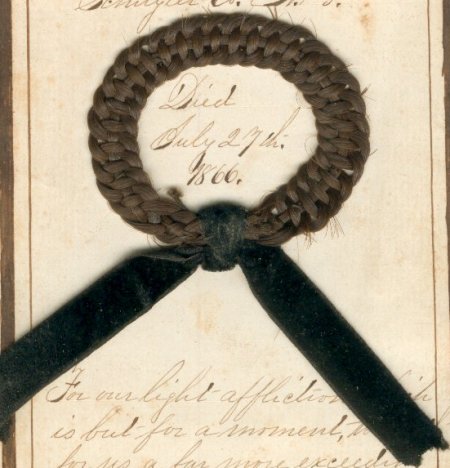 Died
July 27th.
1866.
For our light affliction
is but for a moment,
for us a far more exceed